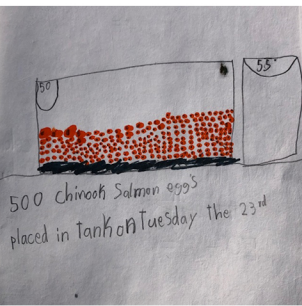 50
55°
500 Chinook Salmon egg's
placed in tank on Tuesday the 23rd